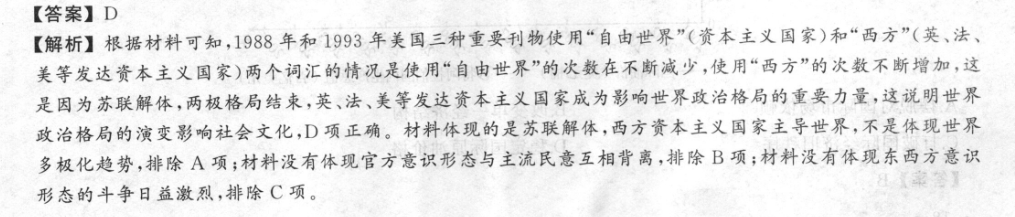 【答案】D
【解析】根据材料可知,1988 年和 1993 年美国三种重要刊物使用“自由世界”(资本主义国家)和“西方”(英、法、
美等发达资本主义国家)两个词汇的情况是使用“自由世界”的次数在不断减少,使用“西方”的次数不断增加,这
是因为苏联解体,两极格局结束,英、法、美等发达资本主义国家成为影响世界政治格局的重要力量,这说明世界
政治格局的演变影响社会文化,D 项正确。材料体现的是苏联解体,西方资本主义国家主导世界,不是体现世界
多极化趋势,排除 A 项;材料没有体现官方意识形态与主流民意互相背离,排除 B 项;材料没有体现东西方意识
形态的斗争日益激烈,排除 C 项。